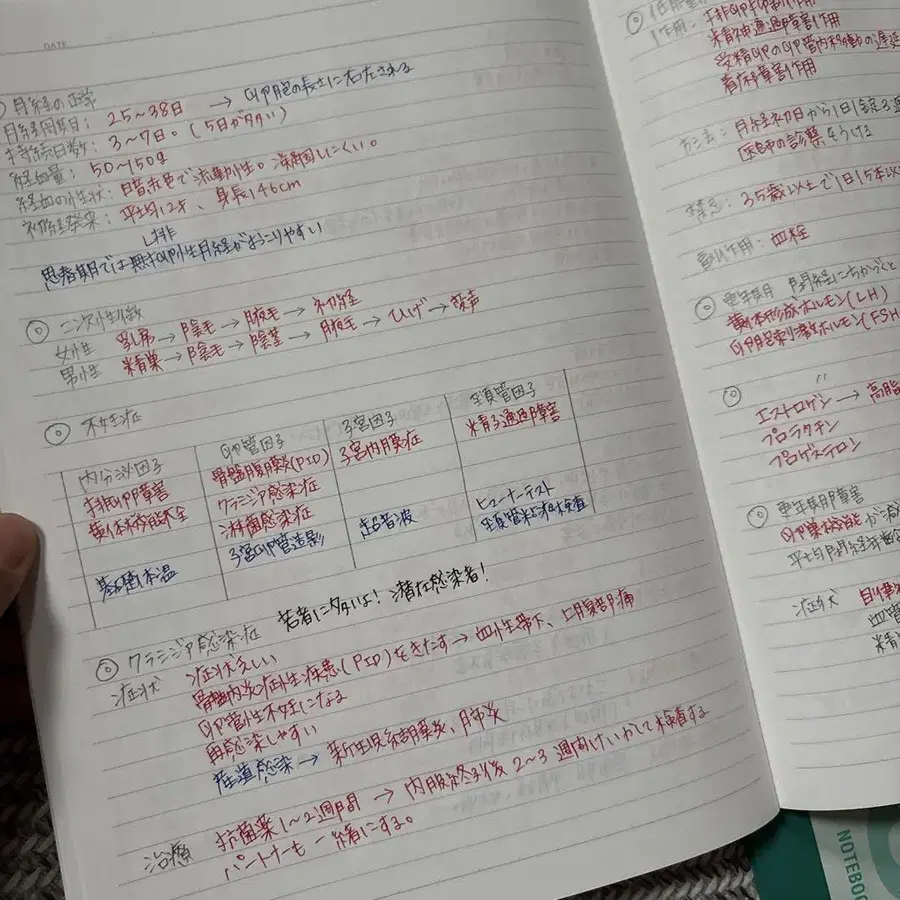 DATE
月経の正常
月経周期: 25〜38日 → 卵胞の長さに右左される
持続日数: 3〜7日。(5日が多い)
経血量: 50〜150g
経血の性状: 暗赤色で流動性。凝固しにくい。
初経発来: 平均12才、身長146cm
└排
思春期では無排卵性月経がおこりやすい
◎ 二次性徴
女性 乳房→陰毛→腋毛→初経
男性 精巣→陰毛→陰茎→腋毛→ひげ→変声
◎ 不妊症
内分泌因子 卵管因子 子宮因子 頸管因子
排卵障害 骨盤腹膜炎(PID) 子宮内膜症 精子通過障害
黄体機能不全 クラミジア感染症
淋菌感染症
基礎体温 子宮卵管造影 超音波 ヒューナーテスト
頸管粘液検査
◎ クラミジア感染症 若者に多いよ! 潜在感染者!
症状 症状えしい
骨盤内炎症性疾患(PID)をきたす→血性帯下、上腹部痛
卵管性不妊になる
再感染しやすい
産道感染→新生児結膜炎、肺炎
治療 抗菌薬1〜2週間 → 内服終了後2〜3週間けいかして検査する
パートナーも一緒にする。
作用: 排卵抑制作用
精神通過障害作用
受精卵の卵管内移動の遅延
着床障害作用
方法: 月経初日から1日1錠3週
医師の診察をうける
禁忌: 35歳以上で1日15本以
副作用: 血栓
◎ 更年期 閉経にちかづくと
黄体形成ホルモン(LH)
卵胞刺激ホルモン(FSH
◎ 〃
エストロゲン → 高脂
プロラクチン
プロゲステロン
◎ 更年期障害
卵巣機能が減
平均閉経年齢
症状 自律神
血管
精神
NOTEBOO